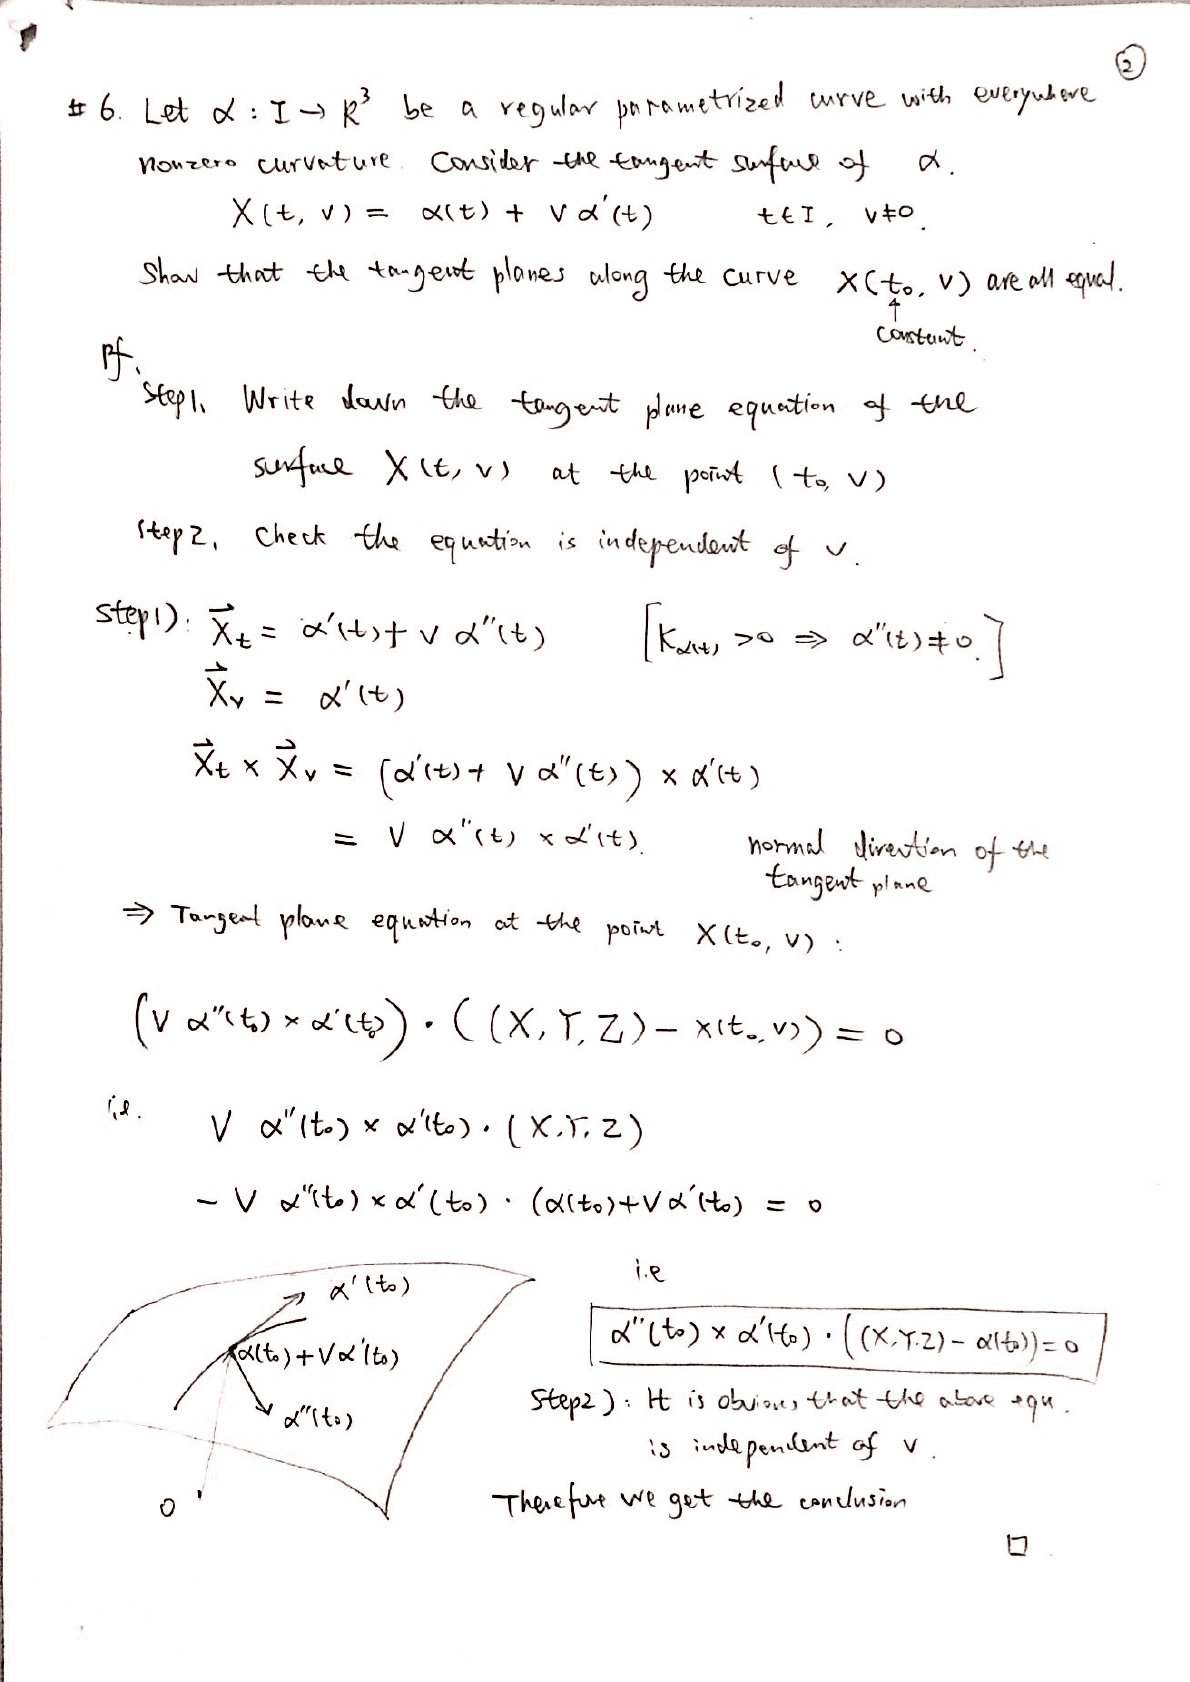 ②
# 6. Let α : I → R³ be a regular parametrized curve with everywhere
nonzero curvature. Consider the tangent surface of α.
X(t, v) = α(t) + v α'(t) t∈I, v≠0.
Show that the tangent planes along the curve X(t₀, v) are all equal.
↑
constant.
Pf.
Step1. Write down the tangent plane equation of the
surface X(t, v) at the point (t₀, v)
Step2. Check the equation is independent of v.
Step1): X⃗ₜ = α'(t)+ v α''(t) [K_α(t) >0 ⇒ α''(t)≠0.]
X⃗ᵥ = α'(t)
X⃗ₜ × X⃗ᵥ = (α'(t)+ v α''(t)) × α'(t)
= v α''(t) × α'(t). normal direction of the
tangent plane
⇒ Tangent plane equation at the point X(t₀, v) :
(v α''(t₀) × α'(t₀)) · ((X, Y, Z) – X(t₀, v)) = 0
i.e. v α''(t₀) × α'(t₀) · (X, Y, Z)
– v α''(t₀) × α'(t₀) · (α(t₀)+vα'(t₀) = 0
i.e
α''(t₀) × α'(t₀) · ((X,Y,Z) – α(t₀)) = 0
α'(t₀)
α(t₀)+vα'(t₀)
α''(t₀)
0
Step2): It is obvious that the above equ.
is independent of v.
Therefore we get the conclusion
□